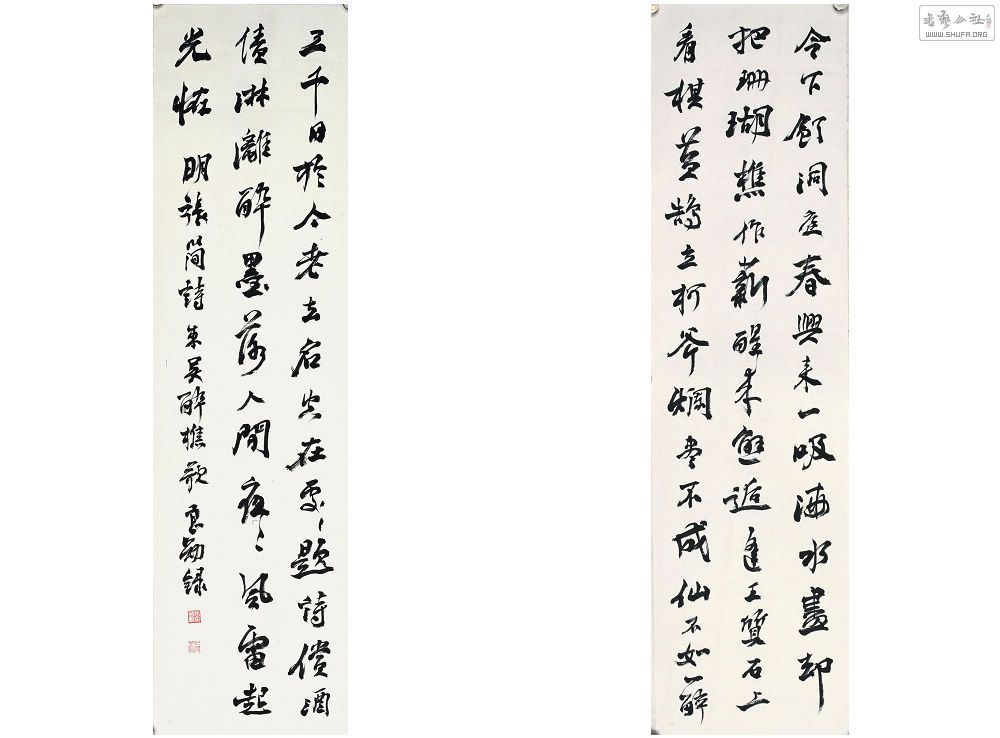 令下飲洞庭春興来一吸海水盡却
把珊瑚樵作薪醒来邂逅逢王質石上
看棋黄鵠立柯斧爛盡不成仙不如一醉
三千日於今老去名空在處々題詩償酒
債淋漓醉墨落人間夜々風雷起
光怪 明張簡詩東吳醉樵歌 良勛録
书艺公社
WWW.SHUFA.ORG